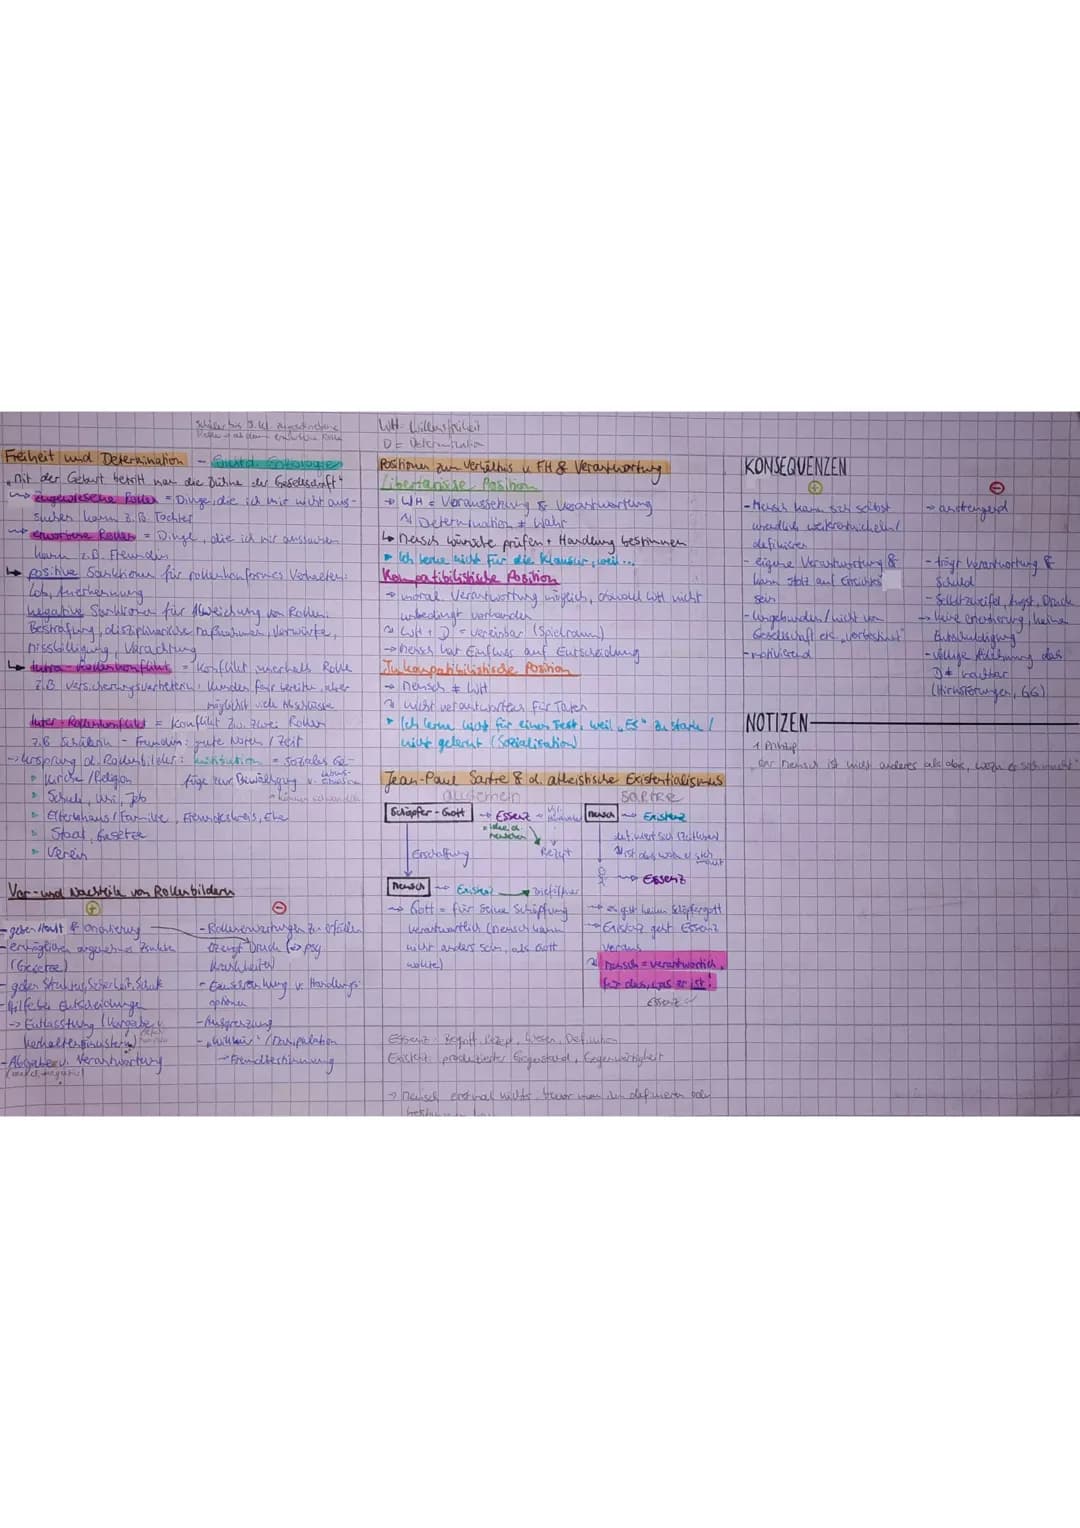 WH = Willensfreiheit
D = Determination
Freiheit und Determination
"Mit der Geburt betritt man die Bühne der Gesellschaft"
zugewiesene Rollen = Dinge, die ich mir nicht aus-
suchen kann z.B. Tochter
erworbene Rollen = Dinge, die ich mir aussuchen
kann z.B. Freundin
positive Sanktionen für rollenkonformes Verhalten:
Lob, Anerkennung
negative Sanktionen für Abweichung von Rollen:
Bestrafung, disziplinarische Maßnahmen, Vorwürfe,
Missbilligung, Verachtung
Intra-Rollenkonflikt = Konflikt innerhalb Rolle
z.B. Versicherungsvertreterin: Kunden fair beraten, aber
möglichst viele Abschlüsse
Inter-Rollenkonflikt = Konflikt zw. zwei Rollen
z.B. Schülerin - Freundin: gute Noten / Zeit
Ursprung d. Rollenbilder: Institution = soziales Ge-
Kirche / Religion
füge zur Bewältigung v.
Schule, Uni, Job
Elternhaus / Familie, Freundeskreis, Ehe
Staat, Gesetze
Verein
Vor- und Nachteile von Rollenbildern
+
-
- geben Halt & Orientierung
(Gesetze)
- geben Struktur, Sicherheit, Schutz
- Hilfe bei Entscheidungen
-> Entlastung (Vorgabe v.
Verhaltensmustern)
- Abgabe v. Verantwortung
- Rollenerwartungen zu erfüllen
erzeugt Druck (-> psy.
Krankheiten)
- Einschränkung v. Handlungs-
optionen
- Ausgrenzung
Manipulation
- Fremdbestimmung
Positionen zum Verhältnis v. FH & Verantwortung
Libertarische Position
-> WH = Voraussetzung für Verantwortung
Determination ≠ wahr
-> Mensch Wünsche prüfen + Handlung bestimmen
Ich lerne nicht für die Klausur, weil...
Kompatibilistische Position
-> moral. Verantwortung möglich, obwohl WH nicht
unbedingt vorhanden
WH + D = vereinbar (Spielraum)
-> Mensch hat Einfluss auf Entscheidung
Inkompatibilistische Position
-> Mensch ≠ WH
nicht verantwortlich für Taten
Ich lerne nicht für einen Test, weil "Es" zu stark /
nicht gelernt (Sozialisation)
Jean-Paul Sartre & d. atheistische Existentialismus
allgemein
SARTRE
Schöpfer-Gott -> Essenz
Idee d. Menschen
Erschaffung
Rezept
Mensch -> Existenz
-> Gott = für seine Schöpfung
verantwortlich (Mensch kann
nicht anders sein, als Gott
wollte)
Mensch -> Existenz
-> Essenz
-> es gibt keinen Schöpfergott
-> Existenz geht Essenz
voraus
Mensch = verantwortlich
für das, was er ist!
Essenz
Essenz: Begriff, Rezept, Wesen, Definition
Existenz: produzierter Gegenstand, Gegenwärtigkeit
-> Mensch erstmal nichts, bevor man ihn definieren oder
KONSEQUENZEN
+
-
- Mensch kann sich selbst
unendlich weiterentwickeln /
definieren
- eigene Verantwortung &
kann stolz auf Erreichtes
sein
- Ungebunden / nicht von
Gesellschaft etc. "vorbestimmt"
- motivierend
-> anstrengend
- trägt Verantwortung &
Schuld
- Selbstzweifel, Angst, Druck
-> keine Orientierung, keine
Entschuldigung
- völlige Ablehnung das
D ≠ haltbar
(Hirnströmungen, GG)
NOTIZEN
1. Prinzip
"Der Mensch ist nichts anderes als das, wozu er sich macht"